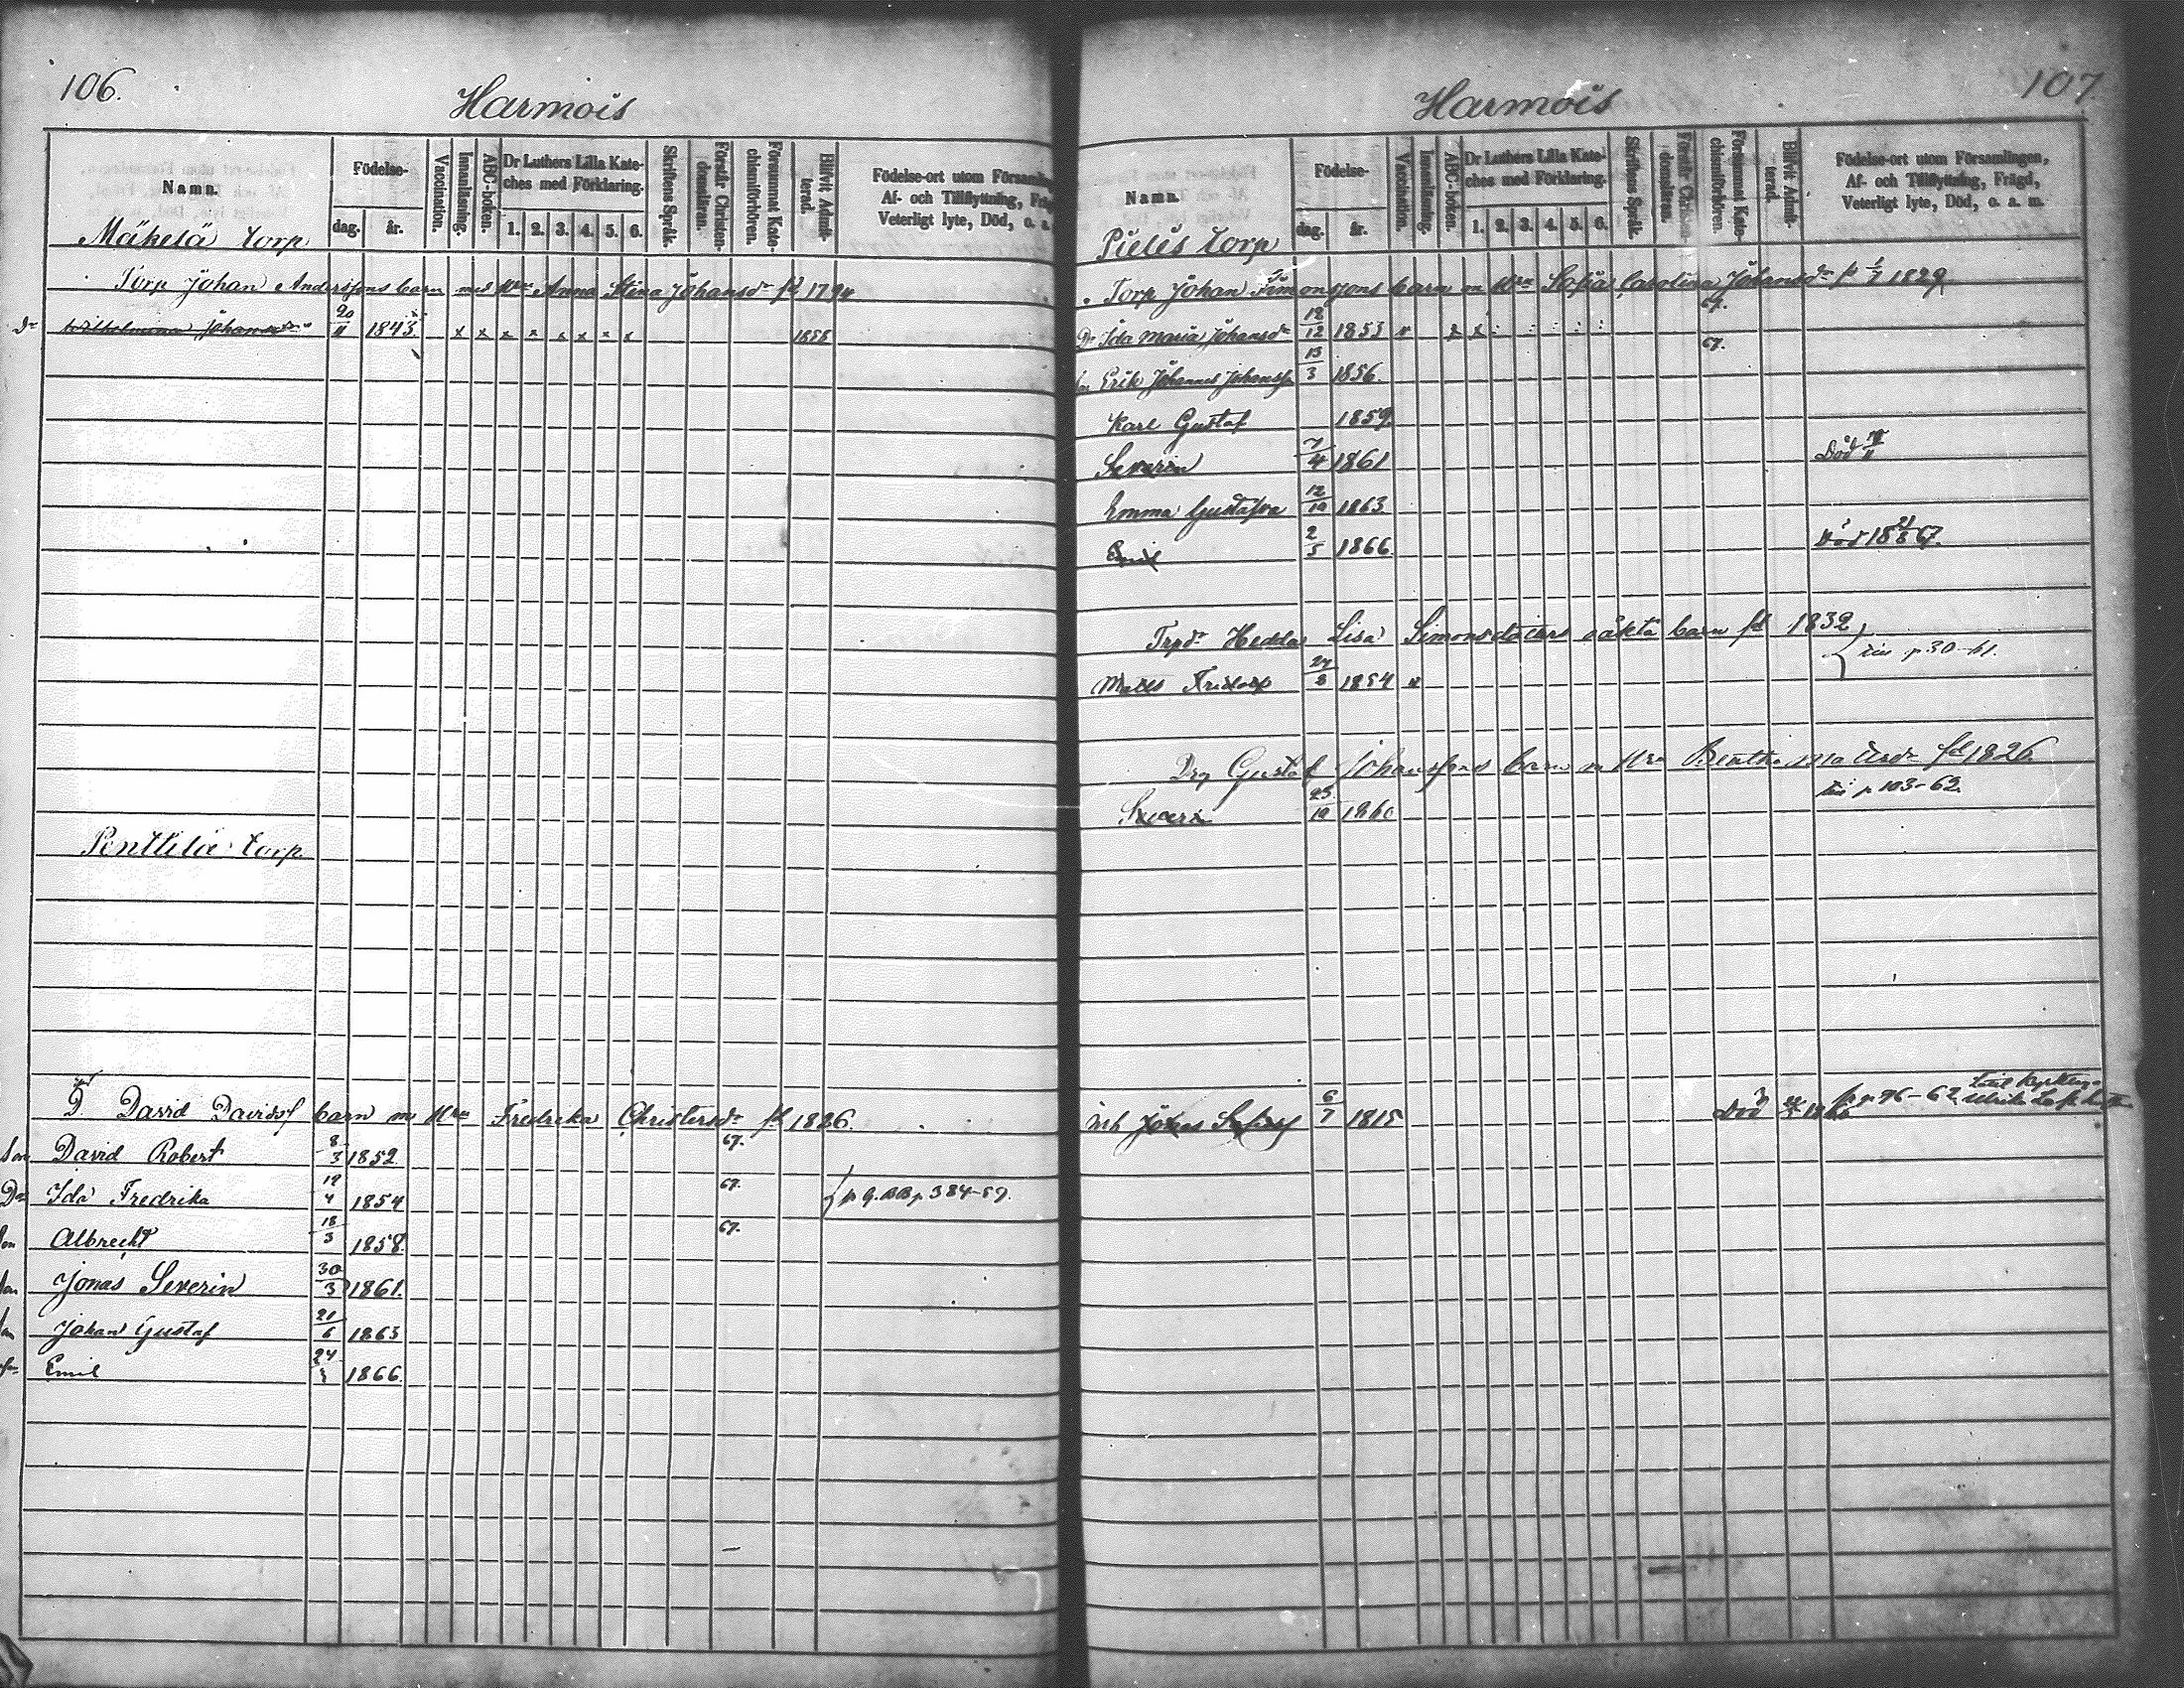 106.
Harmois
Namn.
Födelse-
dag.
år.
Vaccination.
Innanläsning.
ABC-boken.
Dr Luthers Lilla Kate-
ches med Förklaring.
1. 2. 3. 4. 5. 6.
Skriftens Språk.
Förstår Christen-
domsläran.
Försummat Kate-
chismiförhören.
Blifvit Admit-
terad.
Födelse-ort utom Församlin
Af- och Tillflyttning, Fräg
Veterligt lyte, Död, o. a.
Mäkelä torp
Torp Johan Anderssons barn med Hru Anna Stina Johansdr fd 1794
Dr Wilhelmina Johansdr 20/11 1843 x x x x x x x x
Penttilä torp
David Davidsf barn m Hru Fredrika Christersdr fd 1826.
Son David Robert 8/3 1852. 67.
Dr Ida Fredrika 19/4 1854 67. p. 384-59.
Son Albrecht 18/3 1858. 67.
Son Jonas Severin 30/3 1861.
Son Johan Gustaf 21/6 1863
Emil 24 1866.
107
Harmois
Namn.
Födelse-
dag.
år.
Vaccination.
Innanläsning.
ABC-boken.
Dr Luthers Lilla Kate-
ches med Förklaring.
1. 2. 3. 4. 5. 6.
Skriftens Språk.
Förstår Christen-
domsläran.
Försummat Kate-
chismiförhören.
Blifvit Admit-
terad.
Födelse-ort utom Församlingen,
Af- och Tillflyttning, Frägd,
Veterligt lyte, Död, o. a. m.
Pietis torp
Torp Johan Simonssons barn m Hru Sofia Carolina Johansdr 1829
Dr Ida Maria Johansdr 12/12 1853 67.
Son Erik Johannes Johansf 13/3 1856. 67.
Karl Gustaf 1859
Severin 7/4 1861 Död
Emma Gustafva 12/10 1863
Emil 2/5 1866 Död 18 67.
Hedda Lisa Simonsdoters oäkta barn fd 1832
Fridolf 1854 p 30-61.
Drg Gustaf Johanssons barn m Hru fd 1826
25/10 1860 p 103-62.
Jonas 6/7 1815 Död p 96-62